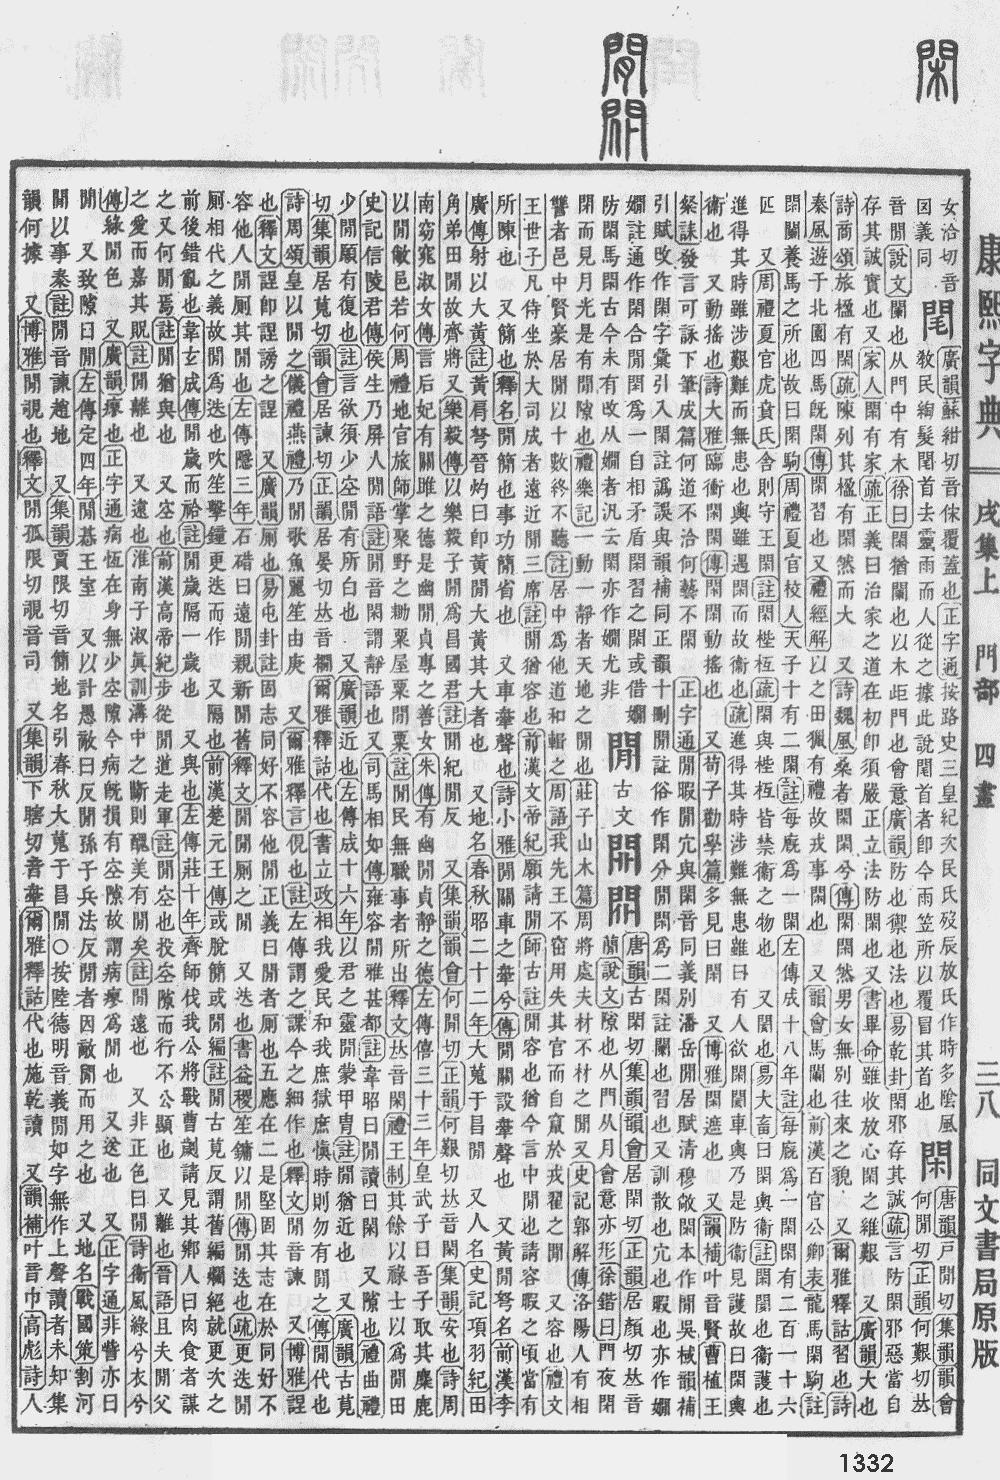 閑
閒𨳡
康熙字典 戌集上 門部 四畫 三八 同文書局原版
女洽切音
囙義同
敎民綯髮閐首去靈雨而人從之據此說閐首者卽今雨笠所以覆冒其首也
閑
唐韻戸閒切集韻韻會
何閒切正韻何艱切𠀤
音閒說文闌也从門中有木徐曰閑猶闌也以木歫門也會意廣韻防也禦也法也易乾卦閑邪存其誠疏言防閑邪惡當自
存其誠實也又家人閑有家疏正義曰治家之道在初卽須嚴正立法防閑也又書畢命雖收放心閑之維艱 又廣韻大也
詩商頌旅楹有閑疏陳列其楹有閑然而大 又詩魏風桑者閑閑兮傳閑閑然男女無別往來之貌 又爾雅釋詁習也詩
秦風遊于北園四馬旣閑傳閑習也又禮經解以之田獵有禮故戎事閑也 又韻會馬闌也前漢百官公卿表龍馬閑駒註
閑闌養馬之所也故曰閑駒周禮夏官校人天子十有二閑註每廐爲一閑左傳成十八年註每廐爲一閑閑有二百一十六
匹 又周禮夏官虎賁氏舍則守王閑註閑梐枑疏閑與梐枑皆禁衞之物也 又閡也易大畜曰閑輿衞註閑閡也衞護也
進得其時雖涉艱難而無患也輿雖遇閑而故衞也疏進得其時涉難無患雖曰有人欲閑閡車輿乃是防衞見護故曰閑輿
衞也 又動搖也詩大雅臨衝閑閑傳閑閑動搖也 又荀子勸學篇多見曰閑 又博雅閑遮也 又韻補叶音賢曹植王
粲誄發言可詠下筆成篇何道不洽何藝不閑 正字通閒暇閒宂與閑音同義別潘岳閒居賦淸穆敞閑本作閒吳棫韻補
引賦改作閑字彙引入閑註譌誤與韻補同正韻十刪閒註俗作閑分閒閑爲二閑註闌也習也又訓散也宂也暇也亦作嫺
嫺註通作閑合閒閑爲一自相矛盾閑習之閑或借嫺
閒
古文
𨳡𨳢
唐韻古閑切集韻韻會居閑切正韻居顏切𠀤音
蕑說文隙也从門从月會意亦形徐鍇曰門夜閉
閉而見月光是有閒隙也禮樂記一動一靜者天地之閒也莊子山木篇周將處夫材不材之閒又史記郭解傳洛陽人有相
讐者邑中賢豪居閒以十數終不聽註居中爲他道和輯之周語我先王不窋用失其官而自竄於戎翟之閒 又容也禮文
王世子凡侍坐於大司成者遠近閒三席註閒猶容也前漢文帝紀願請閒師古註閒容也猶今言中閒也請容暇之頃當有
所陳也 又簡也釋名閒簡也事功簡省也 又車舝聲也詩小雅閒關車之舝兮傳閒關設舝聲也 又黃閒弩名前漢李
廣傳射以大黃註黃肩弩晉灼曰卽黃閒大黃其大者也 又地名春秋昭二十二年大蒐于昌閒 又人名史記項羽紀田
角弟田閒故齊將又樂毅傳以樂毅子閒爲昌國君註閒紀閒反 又集韻韻會何閒切正韻何艱切𠀤音閑集韻安也詩周
南窈窕淑女傳言后妃有關雎之德是幽閒貞專之善女朱傳有幽閒貞靜之德左傳僖三十三年皇武子曰吾子取其麋鹿
以閒敝邑若何周禮地官旅師掌聚野之耡粟屋粟閒粟註閒民無職事者所出釋文𠀤音閑禮王制其餘以祿士以爲閒田
史記信陵君傳侯生乃屛人閒語註閒音閑謂靜語也又司馬相如傳雍容閒雅甚都註韋昭曰閒讀曰閑 又隙也禮曲禮
少閒願有復也註言欲須少空閒有所白也 又廣韻近也左傳成十六年以君之靈閒蒙甲冑註閒猶近也 又廣韻古莧
切集韻居莧切韻會居諫切正韻居晏切𠀤音襉爾雅釋詁代也書立政相我愛民和我庶獄庶愼時則勿有閒之傳閒代也
詩周頌皇以閒之儀禮燕禮乃閒歌魚麗笙由庚 又爾雅釋言俔也註左傳謂之諜今之細作也釋文閒音諫 又博雅䛡
也釋文䛡卽誹謗之䛡 又廣韻厠也易屯卦註固志同好不容他閒正義曰閒者厠也五應在二是堅固其志在於同好不
容他人閒厠其閒也左傳隱三年石碏曰遠閒親新閒舊釋文閒閒厠之閒 又迭也書益稷笙鏞以閒傳閒迭也疏更迭閒
厠相代之義故閒爲迭也吹笙擊鐘更迭而作 又隔也前漢楚元王傳或脫簡或閒編註閒古莧反謂舊編爛絕就更次之
前後錯亂也韋玄成傳閒歲而祫註閒歲隔一歲也 又與也左傳莊十年齊師伐我公將戰曹劌請見其鄕人曰肉食者謀
之又何閒焉註閒猶與也 又空也前漢高帝紀步從閒道走軍註閒空也投空隙而行不公顯也 又離也晉語且夫閒父
之愛而嘉其貺註閒離也 又遠也淮南子淑眞訓溝中之斷則醜美有閒矣註閒遠也 又非正色曰閒詩衞風綠兮衣兮
傳綠閒色 又廣韻瘳也正字通病恆在身無少空隙今病旣損有空隙故謂病瘳爲閒也 又送也 又正字通非訾亦曰
閒 又致隙曰閒左傳定四年閒惎王室 又以計愚敵曰反閒孫子兵法反閒者因敵閒而用之也 又地名戰國策割河
閒以事秦註閒音諫趙地 又集韻賈限切音簡地名引春秋大蒐于昌閒○按陸德明音義閒如字無作上聲讀者未知集
韻何據 又博雅閒覗也釋文閒孤限切覗音司 又集韻下瞎切音舝爾雅釋詁代也施乾讀 又韻補叶音巾高彪詩人
1332